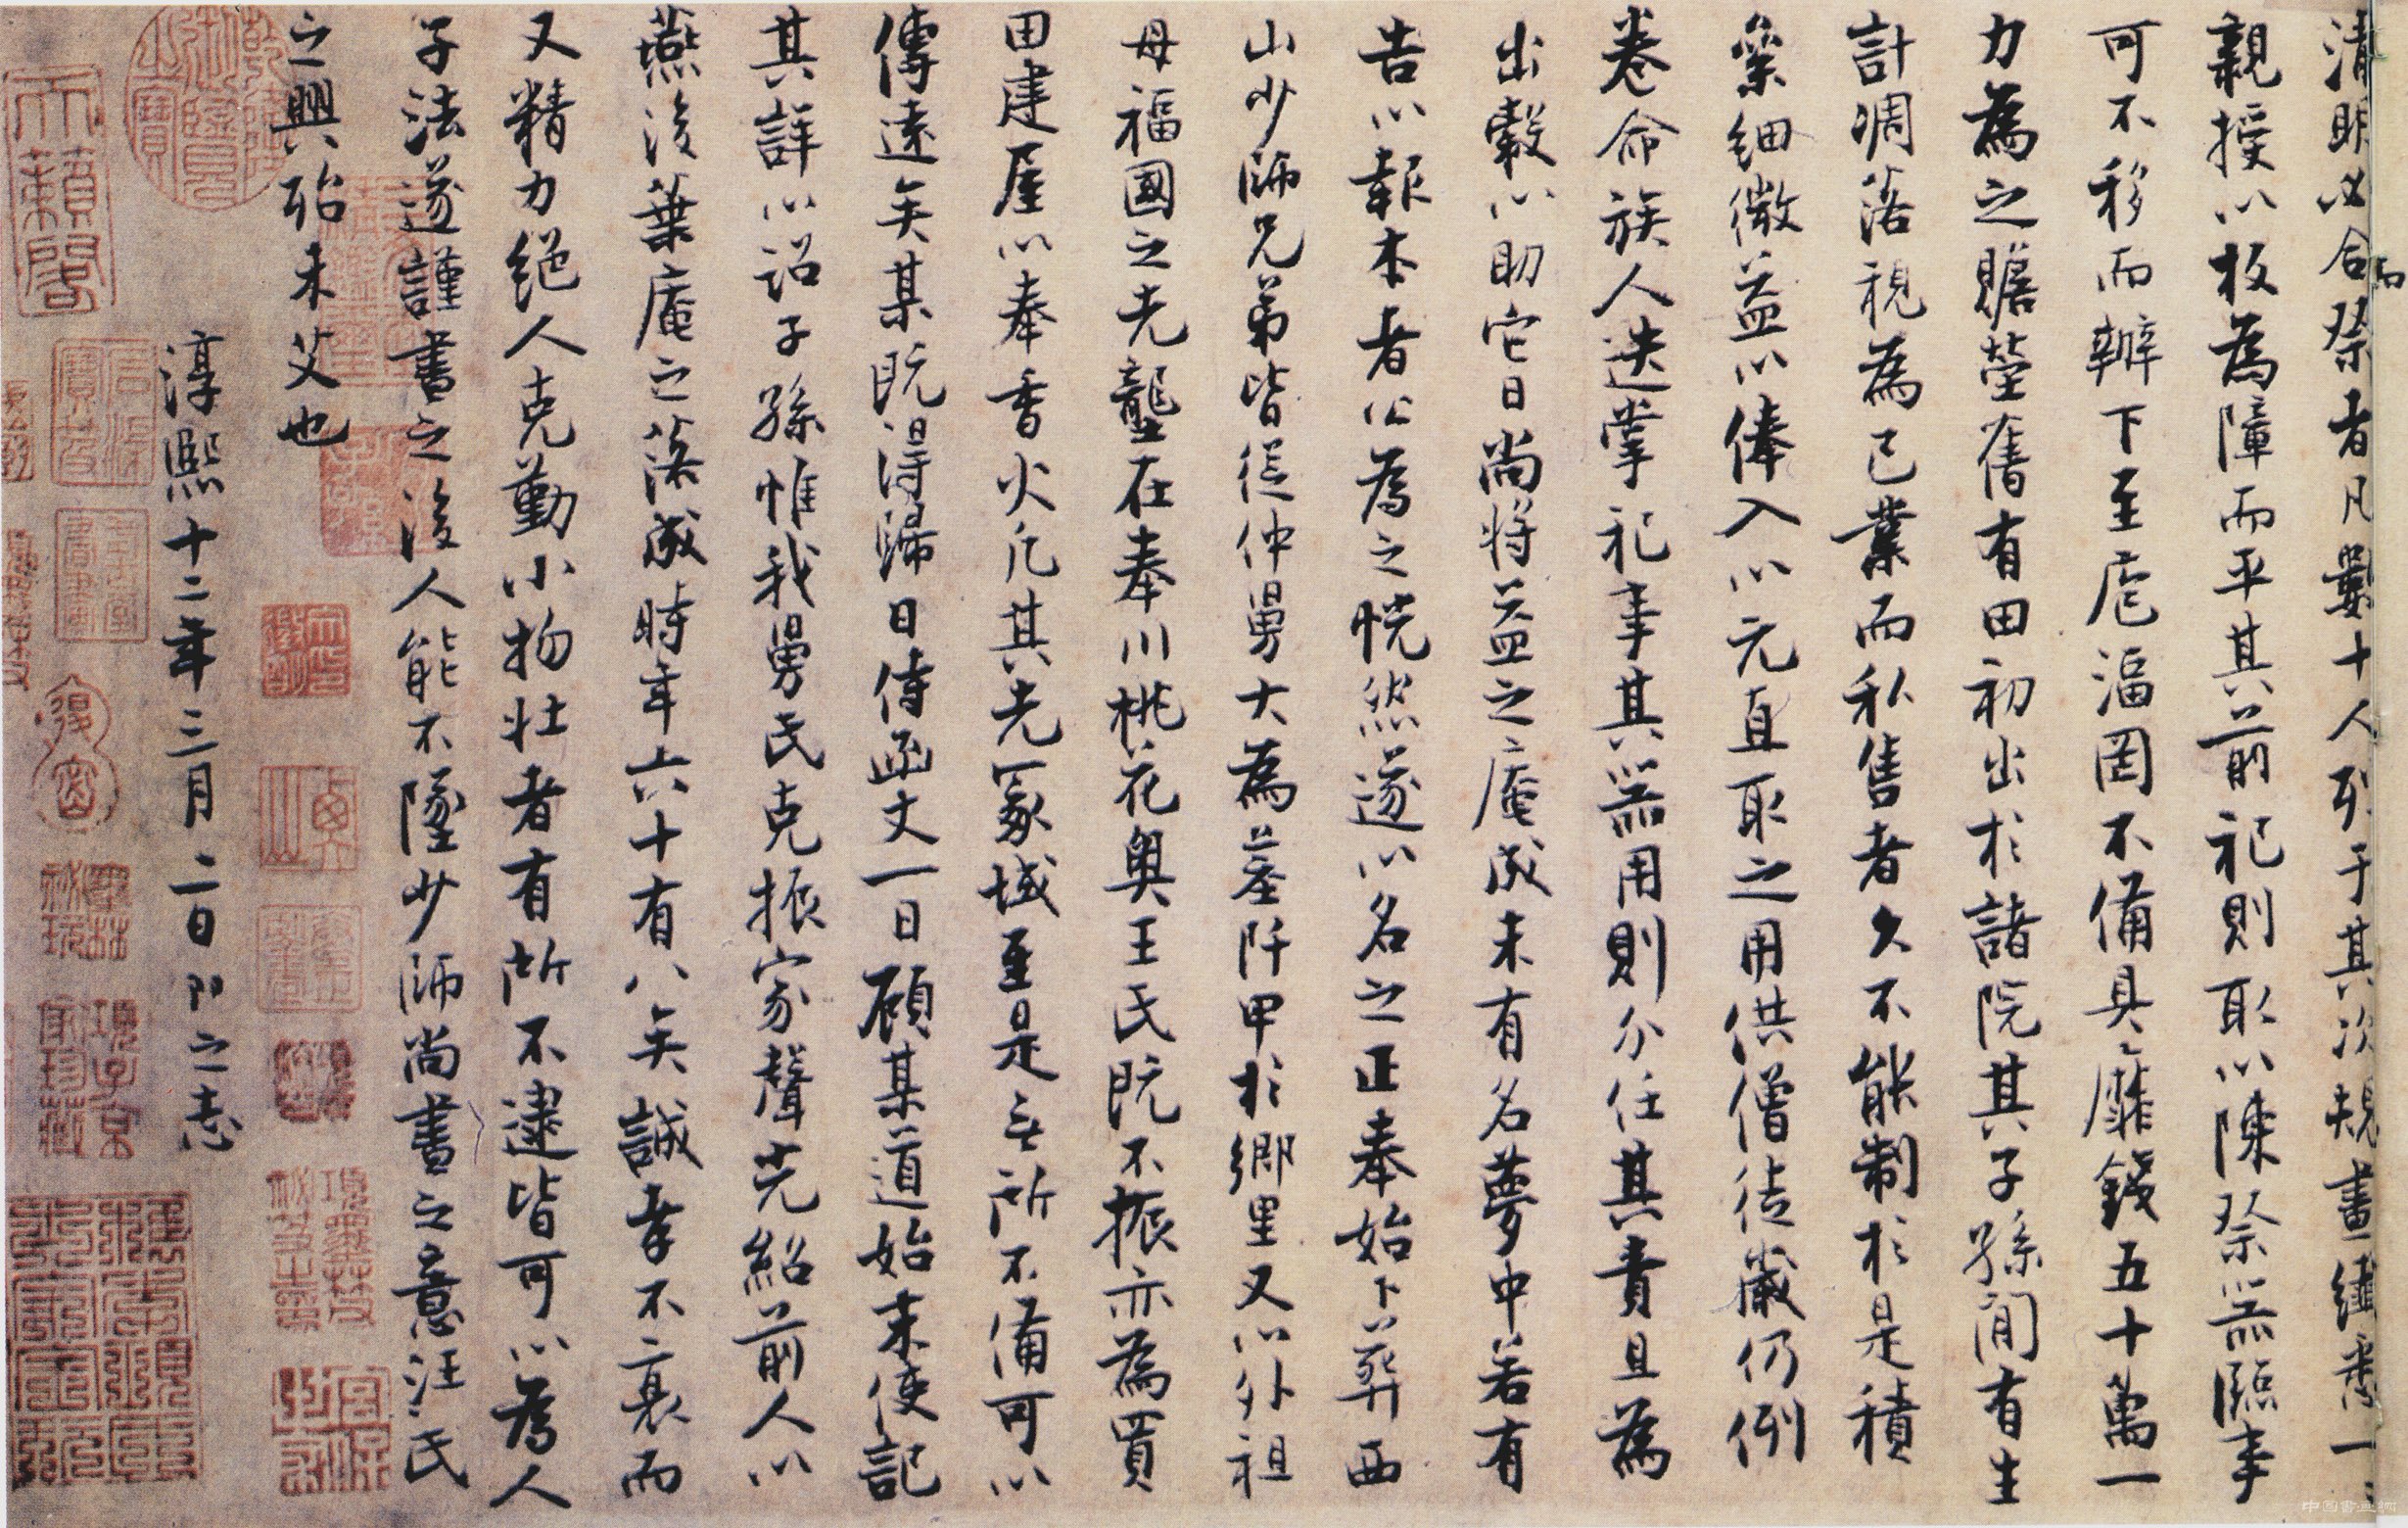 清明必合祭者凡數十人列于其次規畫纖悉一一
親授以板為障而平其前祀則取以陳祭器臨事
可不移而辦下至庖湢罔不備具靡錢五十萬一
力為之贍塋舊有田初出於諸院其子孫間有生
計凋落視為己業而私售者久不能制於是積
絫細微益以俸入以元直取之用供僧徒歲仍例
卷命族人迭掌祀事其器用則分任其責且為
出穀以助它日尚將益之庵成未有名夢中若有
告以報本者公為之恍然遂以名之正奉始卜葬西
山少師兄弟皆從仲舅大為墓阡甲於鄉里又以外祖
母福國之先壟在奉川桃花奧王氏既不振亦為買
田建屋以奉香火凡其先冢域至是無所不備可以
傳遠矣某既得歸日侍函丈一日顧某道始末使記
其詳以詔子孫惟我舅氏克振家聲光紹前人以
燕後葉庵之落成時年六十有八矣誠孝不衰而
又精力絕人克勤小物壯者有所不逮皆可以為人
子法遂謹書之後人能不墜少師尚書之意汪氏
之興殆未艾也
淳熙十二年三月二日 之志